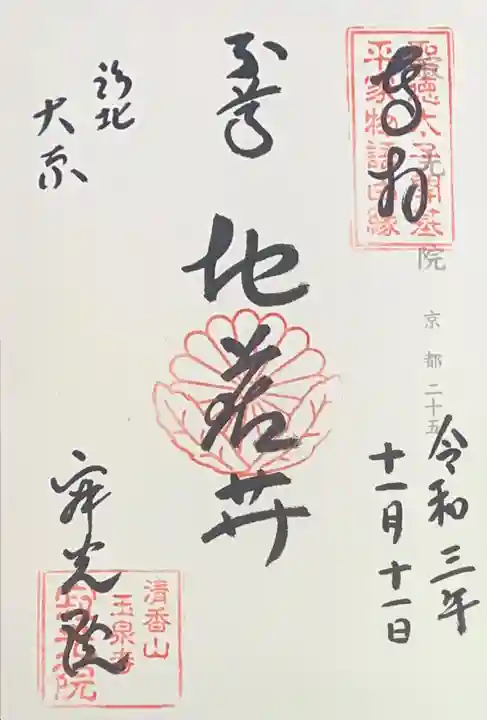 奉拝
聖徳太子開基
平家物語因縁
院
京都二十五
令和三年
十一月十一日
本尊
地蔵菩薩
洛北
大原
寂光院
清香山
玉泉寺
寂光院